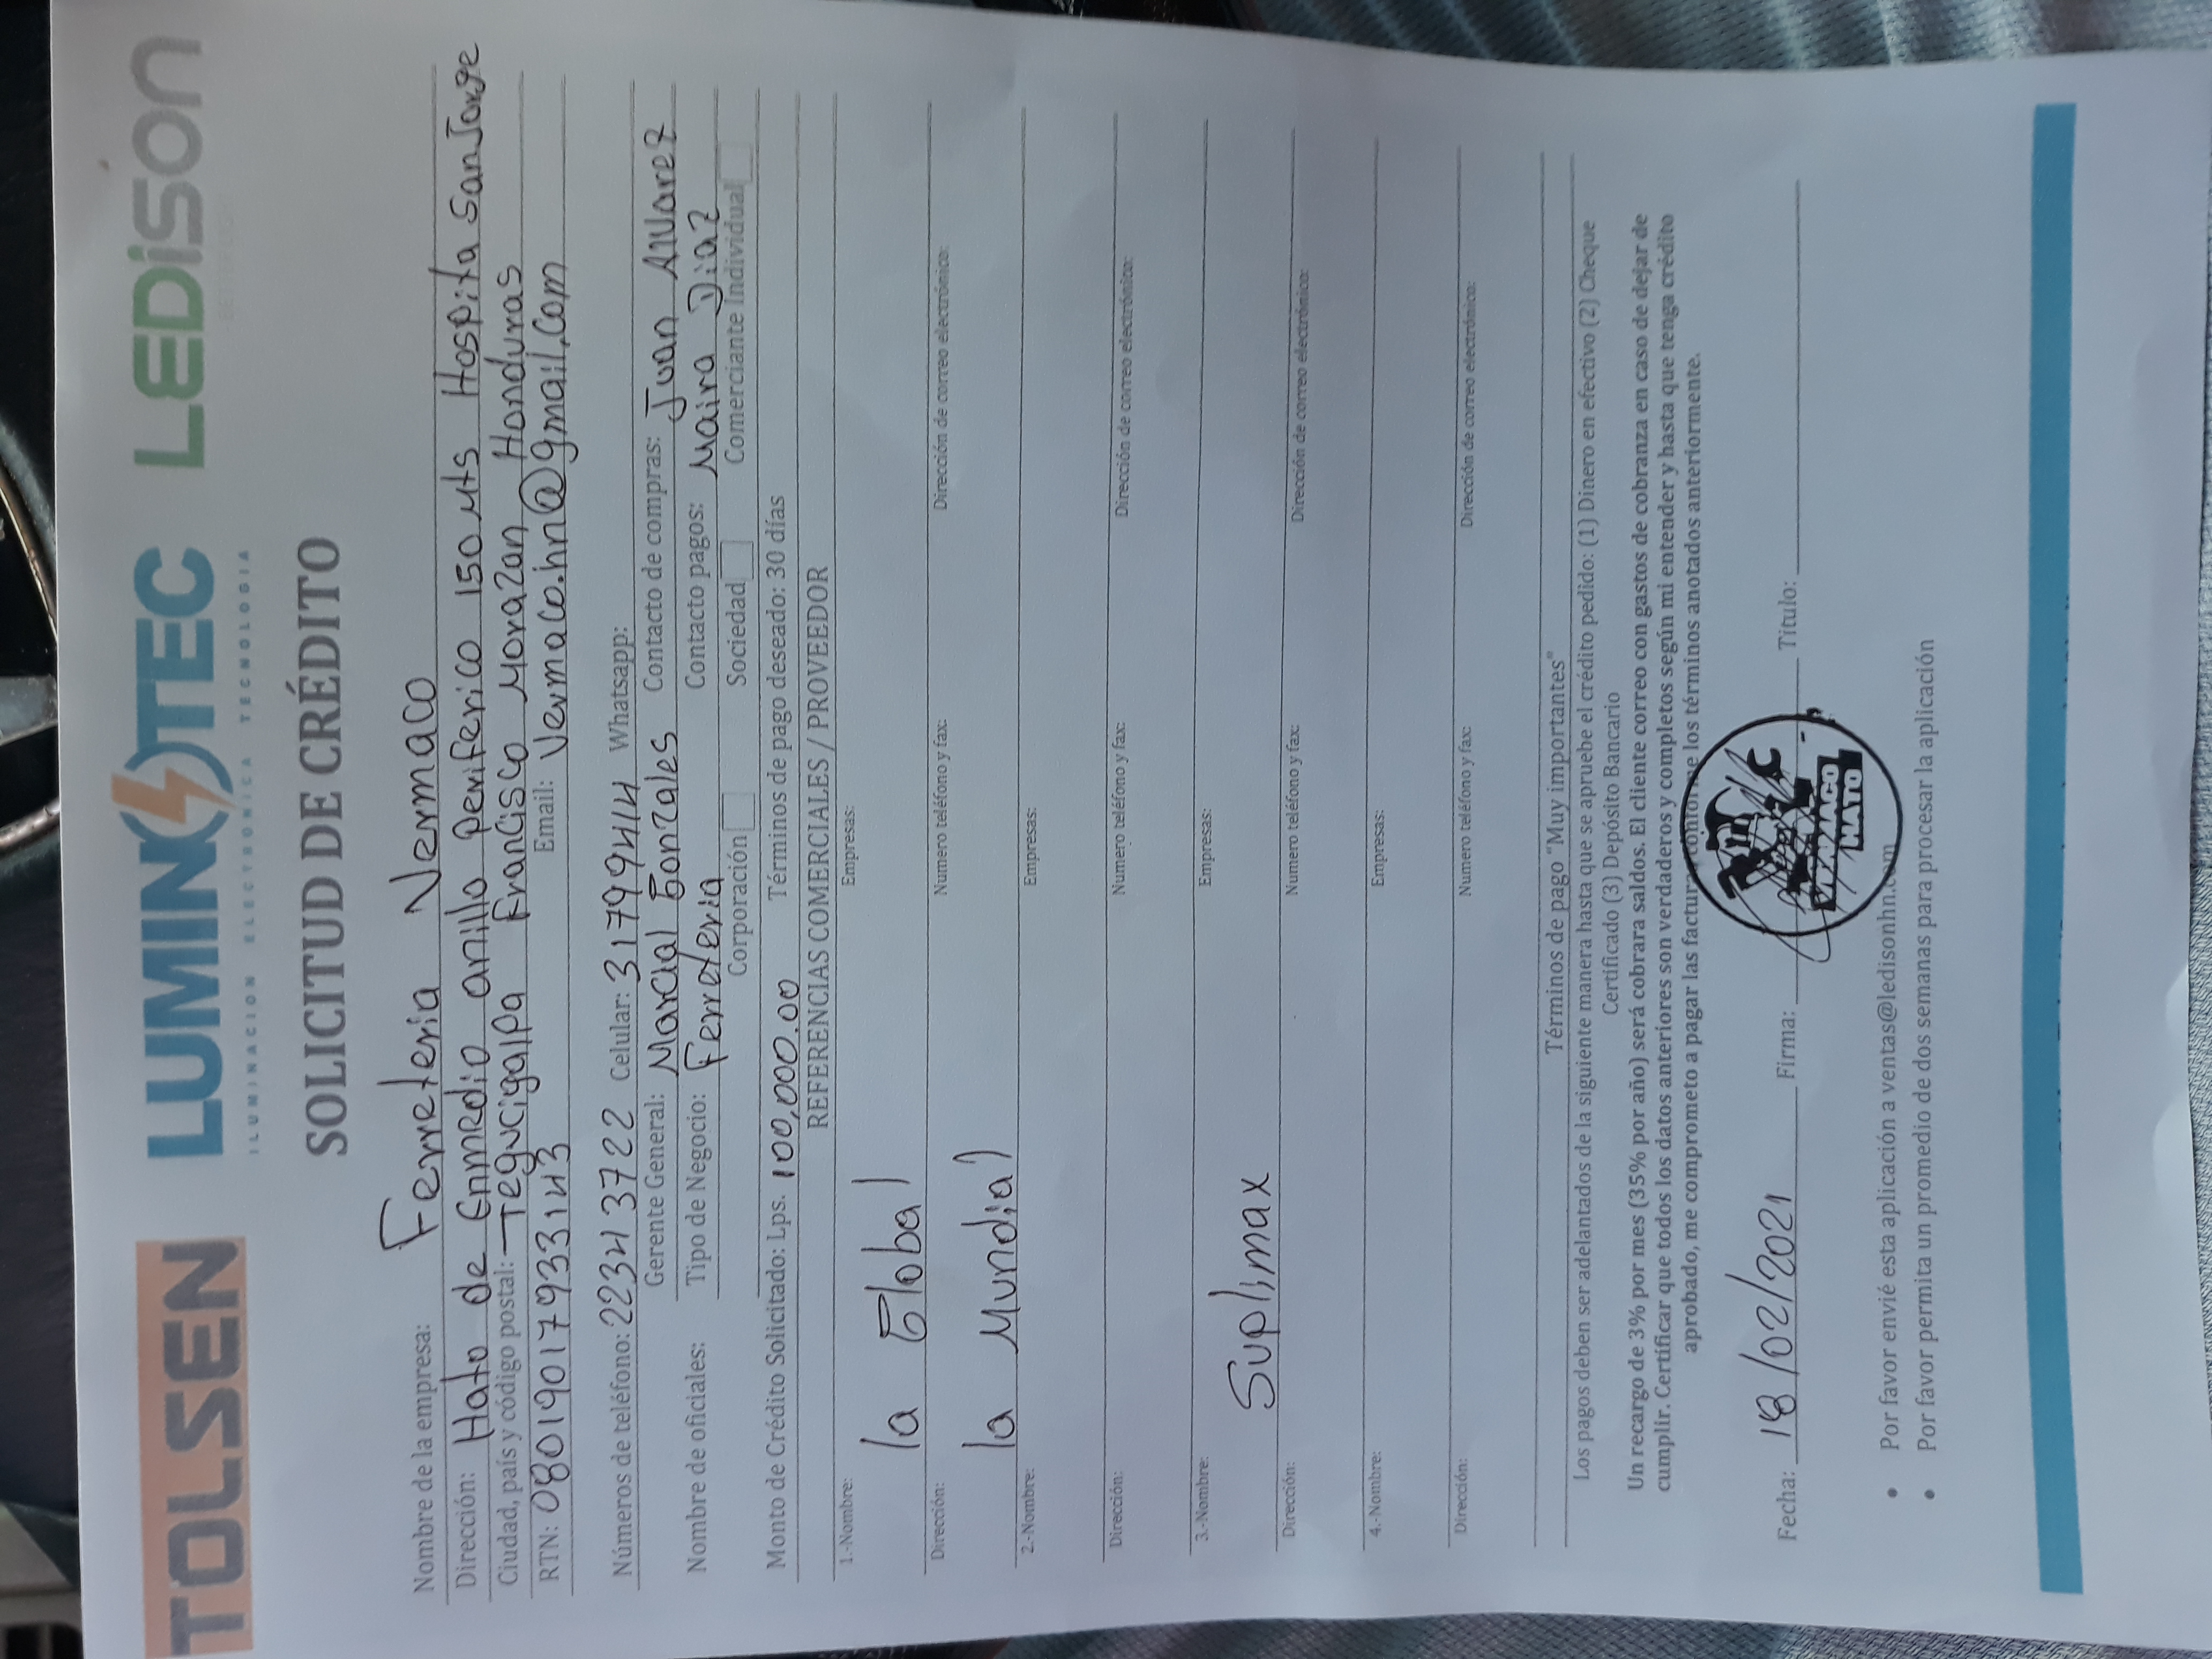 TOLSEN LUMINOTEC LEDiSON
ILUMINACION ELECTRONICA TECNOLOGIA
SOLICITUD DE CRÉDITO
Nombre de la empresa: Ferreteria Vermaco
Dirección: Hato de Enmedio anillo periferico 150 Mts Hospita San Jorge
Ciudad, país y código postal: Tegucigalpa Francisco Morazan Honduras
RTN: 08019017933143 Email: Vermaco.hn@gmail.com
Números de teléfono: 22343722 Celular: 31799414 Whatsapp:
Gerente General: Marcial Gonzales Contacto de compras: Juan Alvarez
Nombre de oficiales: Tipo de Negocio: Ferreteria Contacto pagos: Maira Diaz
Corporación Sociedad Comerciante Individual
Monto de Crédito Solicitado: Lps. 100,000.00 Términos de pago deseado: 30 días
REFERENCIAS COMERCIALES / PROVEEDOR
1.-Nombre: Empresas:
la Global
Dirección: Numero teléfono y fax: Dirección de correo electrónico:
la Mundial
2.-Nombre: Empresas:
Dirección: Numero teléfono y fax: Dirección de correo electrónico:
3.-Nombre: Empresas:
Suplimax
Dirección: Numero teléfono y fax: Dirección de correo electrónico:
4.-Nombre: Empresas:
Dirección: Numero teléfono y fax: Dirección de correo electrónico:
Términos de pago “Muy importantes”
Los pagos deben ser adelantados de la siguiente manera hasta que se apruebe el crédito pedido: (1) Dinero en efectivo (2) Cheque
Certificado (3) Depósito Bancario
Un recargo de 3% por mes (35% por año) será cobrara saldos. El cliente correo con gastos de cobranza en caso de dejar de
cumplir. Certificar que todos los datos anteriores son verdaderos y completos según mi entender y hasta que tenga crédito
aprobado, me comprometo a pagar las facturas conforme los términos anotados anteriormente.
Fecha: 18/02/2021 Firma: Titulo:
VERMACO
HATO
Por favor envié esta aplicación a ventas@ledisonhn.com
Por favor permita un promedio de dos semanas para procesar la aplicación